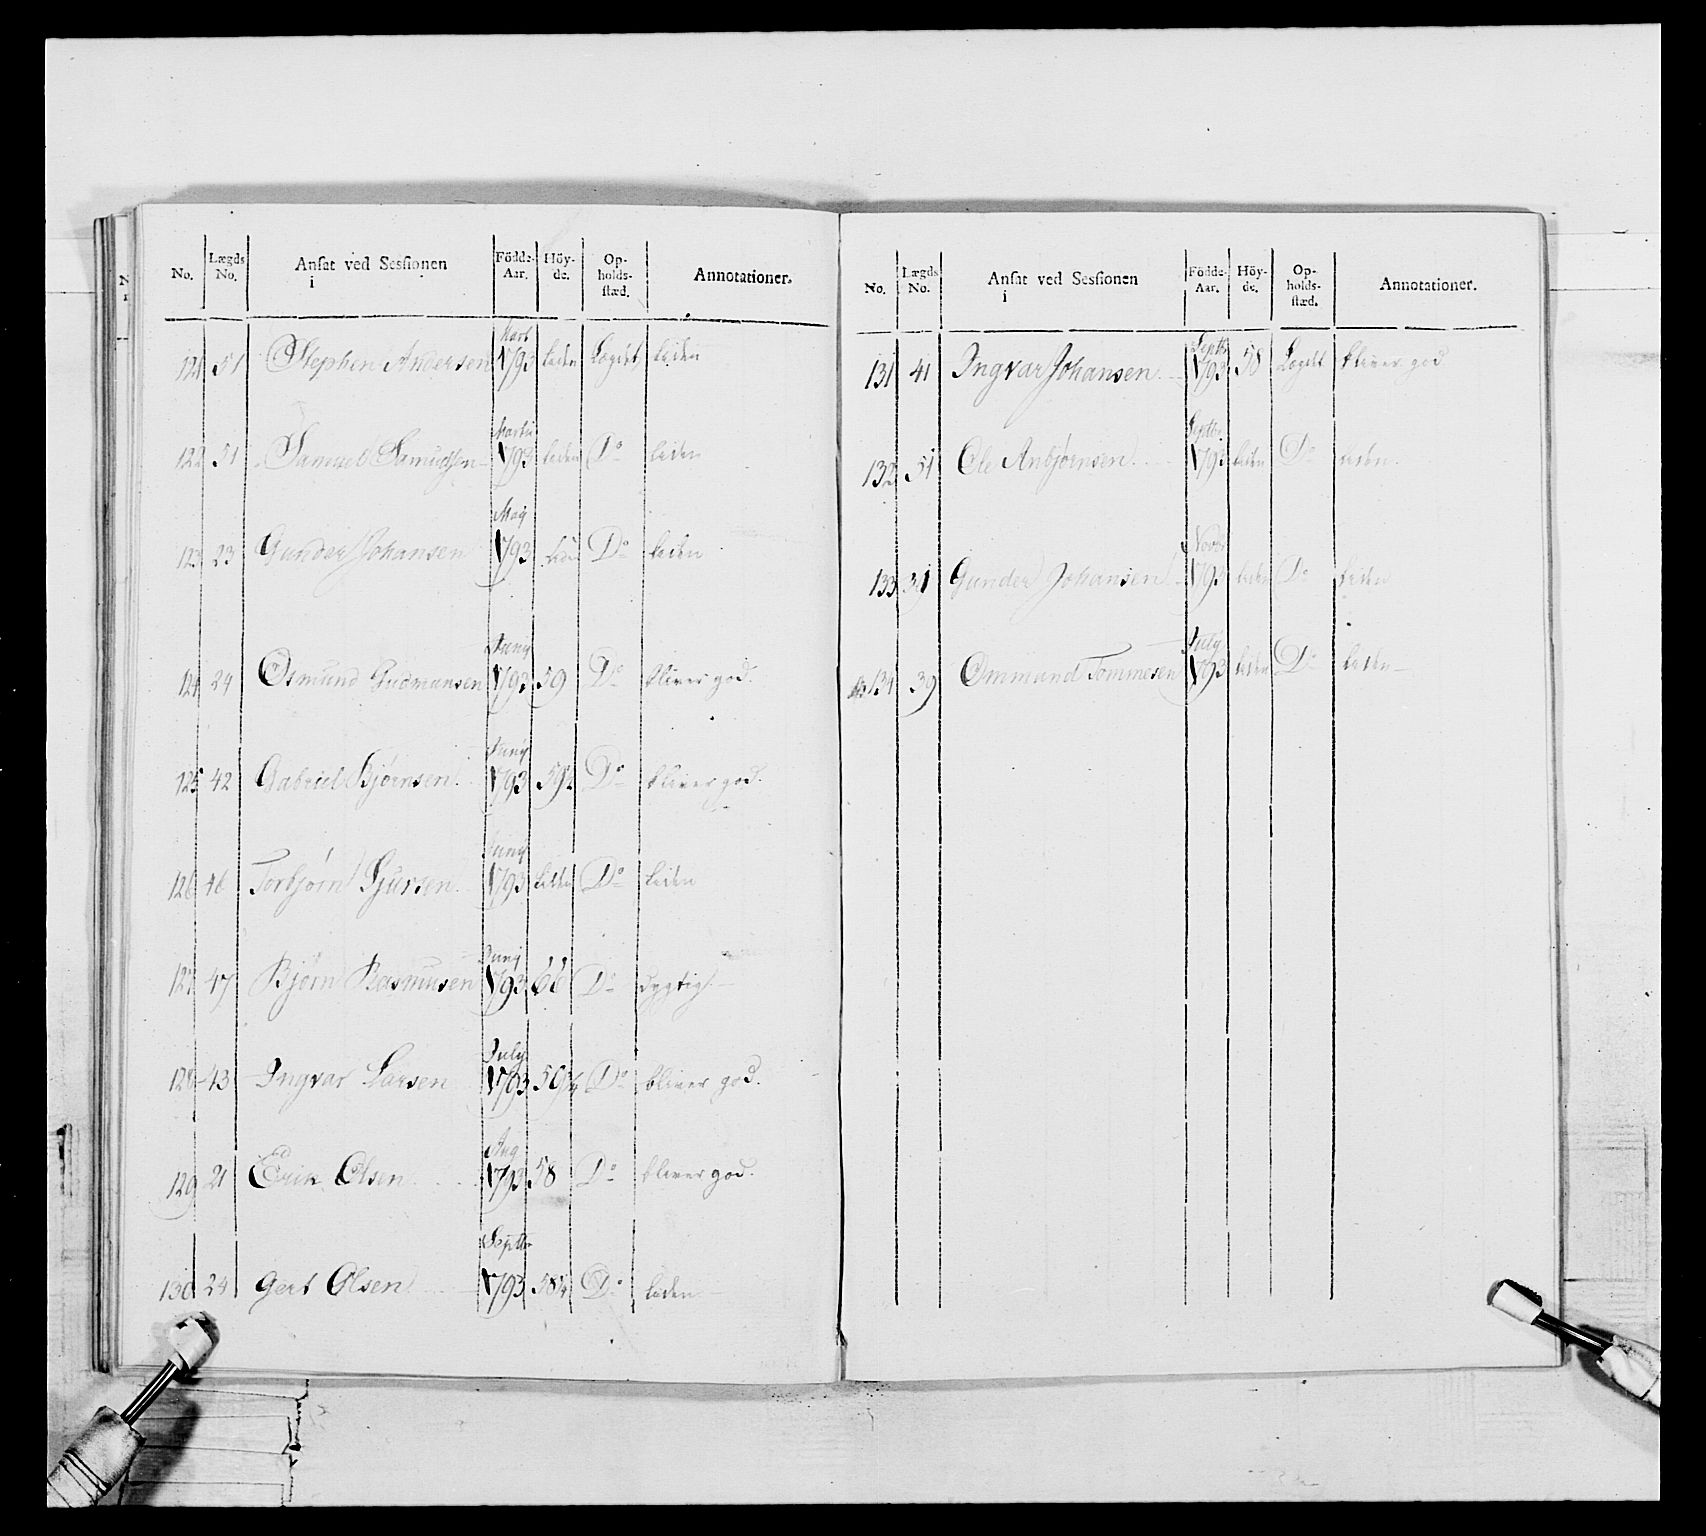 No. Lægds No. Ansat ved Sessionen i Födde-Aar. Höy-de. Op-holds-stæd. Annotationer.
Mart
121 51 Stephen Andersen 1793 liden Lægdet liden
Martii
122 51 Samuel Samuelsen 1793 liden Do liden
May
123 23 Gunder Johansen 1793 liden Do liden
Juny
124 24 Osmund Gudmunsen 1793 59 Do bliver god.
Juny
125 42 Gabriel Bjørnsen 1793 59½ Do bliver god.
Juny
126 46 Torbjørn Sjursen 1793 liden Do liden
Junj
127 47 Bjørn Rasmusen 1793 66 Do dygtig
July
128 43 Ingvar Larsen 1793 Do bliver god.
Aug
129 21 Erik Olsen 1793 58 Do bliver god.
Septbr
130 24 Gert Olsen 1793 58¼ Do liden
No. Lægds No. Ansat ved Sessionen i Födde-Aar. Höy-de. Op-holds-stæd. Annotationer.
Septbr
131 41 Ingvar Johansen 1793 58 Lægdet bliver god
Septbr
132 51 Ole Anbjørnsen 1793 liden Do liden.
Novbr
133 31 Gunder Johansen 1793 liden Do liden
July
134 39 Ommund Tommesen 1793 liden Do liden